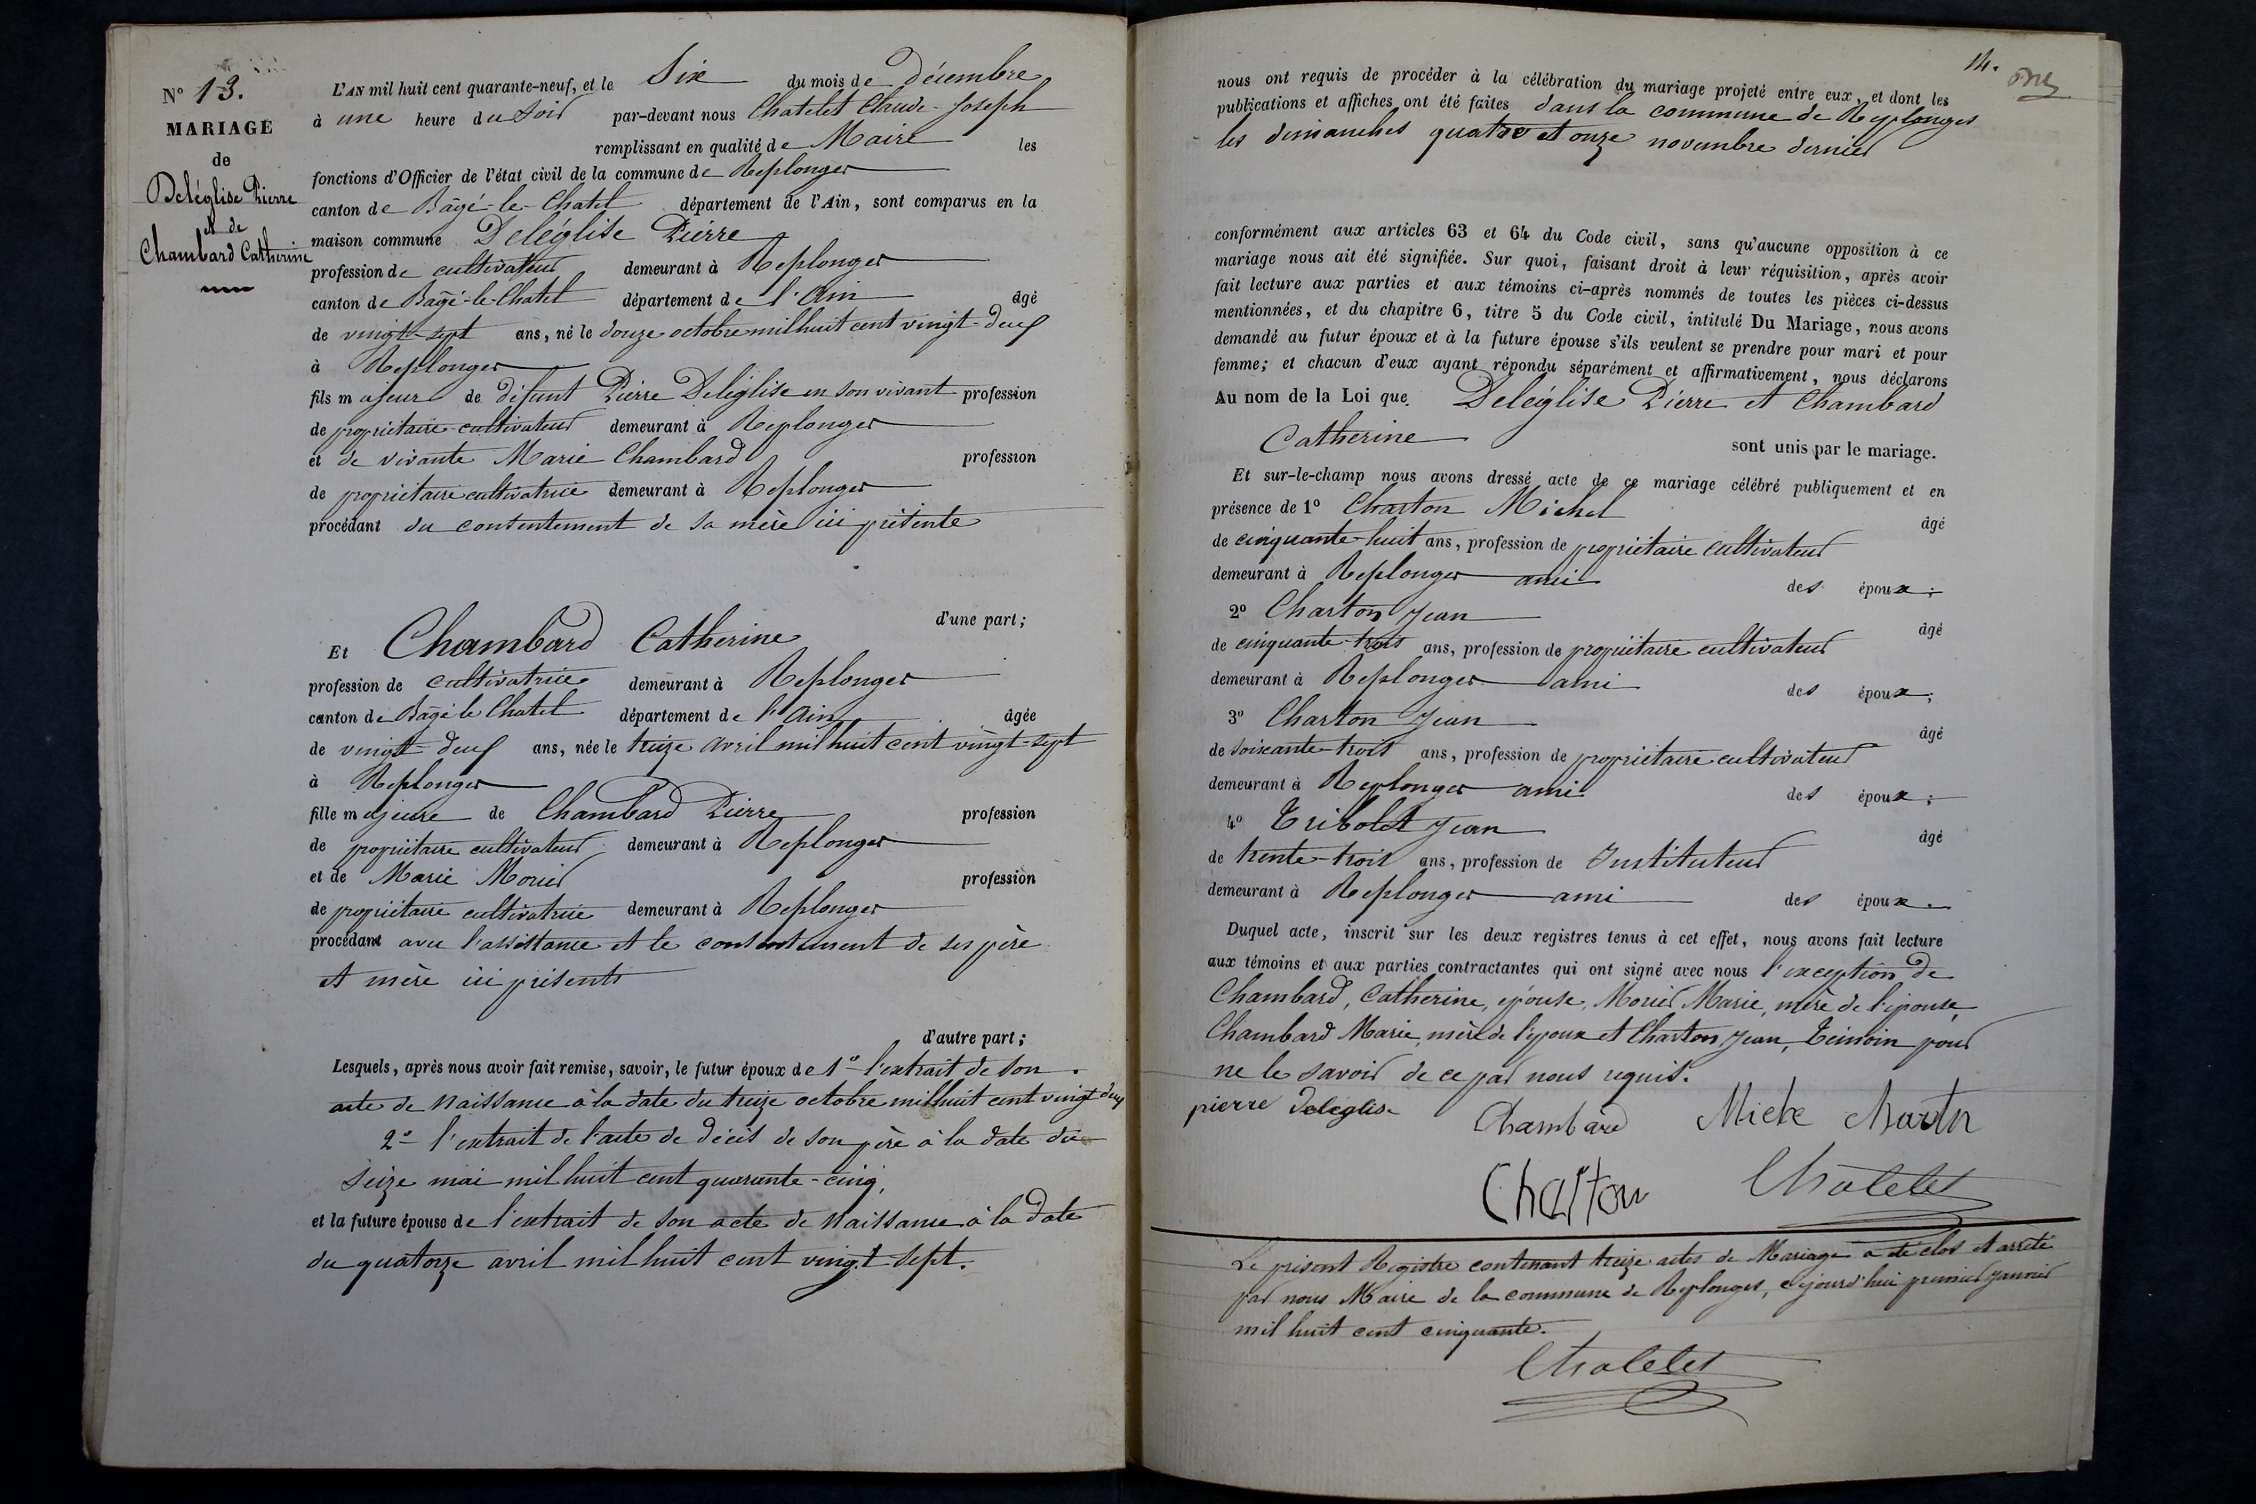 N° 13.
MARIAGE
de
Deléglise Pierre
et de
Chambard Catherine
L'AN mil huit cent quarante-neuf, et le Six du mois de décembre
à une heure du Soir par-devant nous Chatelet Claude-Joseph
remplissant en qualité de Maire les
fonctions d'Officier de l'état civil de la commune de Replonges
canton de Bâgé-le-Chatel département de l'Ain, sont comparus en la
maison commune Deléglise Pierre
profession de cultivateur demeurant à Replonges
canton de Bâgé-le-Chatel département de l'Ain âgé
de vingt-sept ans, né le douze octobre mil huit cent vingt-deux
à Replonges
fils majeur de défunt Pierre Deléglise en son vivant profession
de propriétaire-cultivateur demeurant à Replonges
et de vivante Marie Chambard profession
de propriétaire cultivatrice demeurant à Replonges
procédant du contentement de sa mère ici présente
d'une part;
Et Chambard Catherine
profession de cultivatrice demeurant à Replonges
canton de Bâgé le Chatel département de l'Ain âgée
de vingt-deux ans, née le treize avril mil huit cent vingt-sept
à Replonges
fille majeure de Chambard Pierre profession
de propriétaire cultivateur demeurant à Replonges
et de Marie Morier profession
de propriétaire cultivatrice demeurant à Replonges
procédant avec l'assistance et le consentement de ses père
et mère ici présents
d'autre part;
Lesquels, après nous avoir fait remise, savoir, le futur époux de 1° l'extrait de son
acte de naissance à la date du treize octobre mil huit cent vingt deux
2° l'extrait de l'acte de décès de son père à la date du
seize mai mil huit cent quarante-cinq,
et la future épouse de l'extrait de son acte de naissance à la date
du quatorze avril mil huit cent vingt-sept.
14.
nous ont requis de procéder à la célébration du mariage projeté entre eux, et dont les
publications et affiches ont été faites dans la commune de Replonges
les dimanches quatre et onze novembre dernier
conformément aux articles 63 et 64 du Code civil, sans qu'aucune opposition à ce
mariage nous ait été signifiée. Sur quoi, faisant droit à leur réquisition, après avoir
fait lecture aux parties et aux témoins ci-après nommés de toutes les pièces ci-dessus
mentionnées, et du chapitre 6, titre 5 du Code civil, intitulé Du Mariage, nous avons
demandé au futur époux et à la future épouse s'ils veulent se prendre pour mari et pour
femme; et chacun d'eux ayant répondu séparément et affirmativement, nous déclarons
Au nom de la Loi que Deléglise Pierre et Chambard
Catherine sont unis par le mariage.
Et sur-le-champ nous avons dressé acte de ce mariage célébré publiquement et en
présence de 1° Charton Michel âgé
de cinquante-huit ans, profession de propriétaire cultivateur
demeurant à Replonges ami des époux;
2° Charton Jean âgé
de cinquante-trois ans, profession de propriétaire cultivateur
demeurant à Replonges ami des époux;
3° Charton Jean âgé
de soixante-trois ans, profession de propriétaire cultivateur
demeurant à Replonges ami des époux;
4° Tribolet Jean âgé
de trente-trois ans, profession de Instituteur
demeurant à Replonges ami des époux.
Duquel acte, inscrit sur les deux registres tenus à cet effet, nous avons fait lecture
aux témoins et aux parties contractantes qui ont signé avec nous l'exception de
Chambard, Catherine, épouse, Morier Marie, mère de l'épouse,
Chambard Marie, mère de l'époux et Charton Jean, témoin pour
ne le savoir de ce par nous requis.
pierre deleglise Chambard Miche Charton
Charton Chatelet
Le présent Registre contenant treize actes de Mariage a été clos et arrêté
par nous Maire de la commune de Replonges, cejourd'hui premier janvier
mil huit cent cinquante.
Chatelet